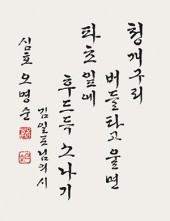 청개구리
버들타고 울면
파초잎에
후드득 소나기
김일로님의 시
심호 오명순